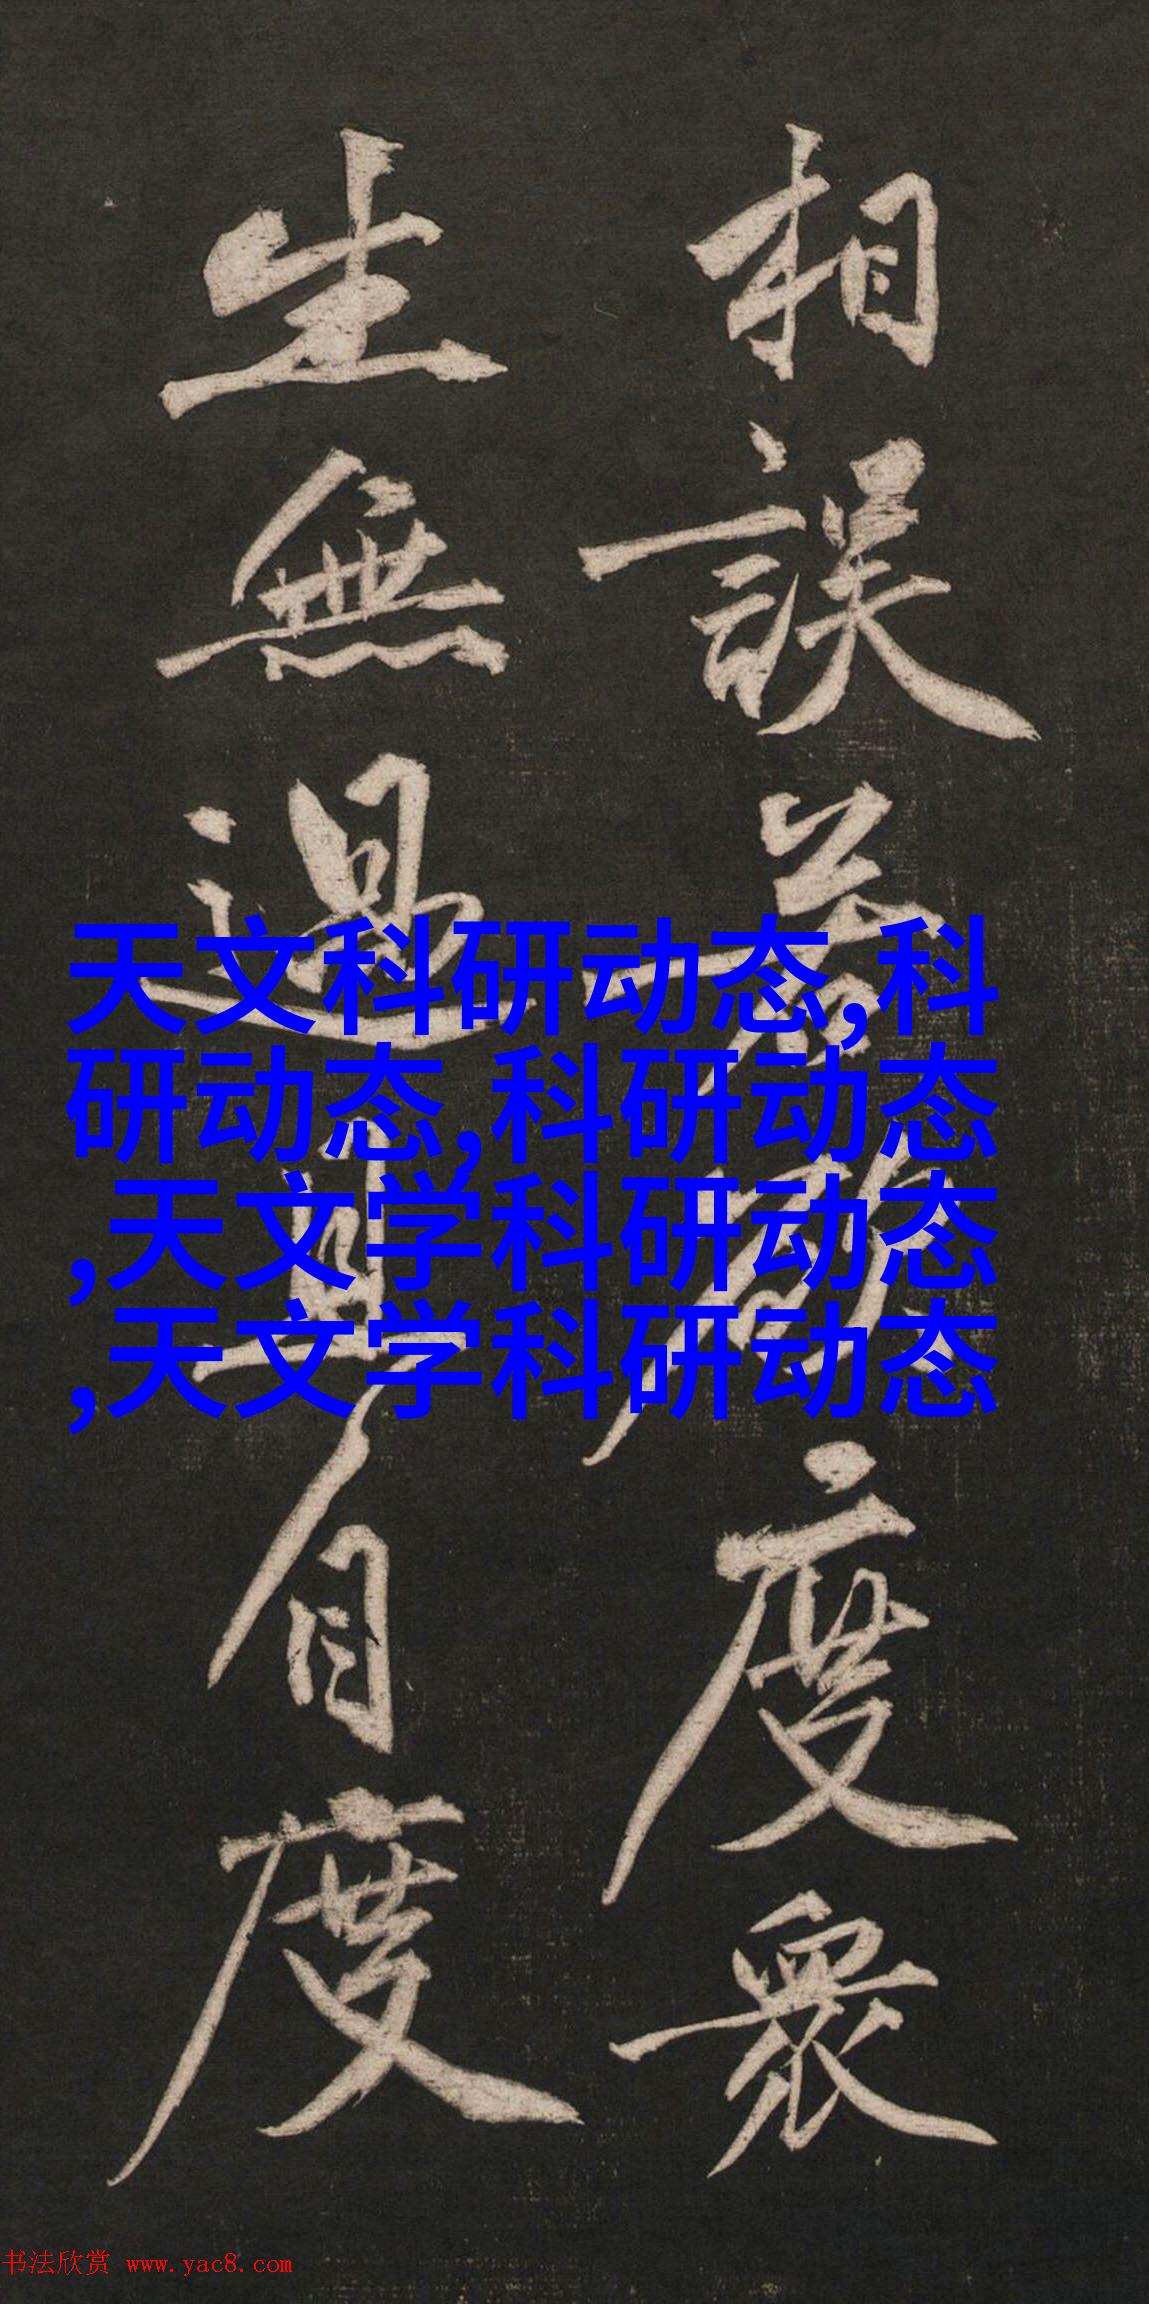 相誤若欲度衆
生無過且自度
天文科研动态,科
研动态,科研动态
,天文学科研动态
,天文学科研动态
书法欣赏 www.yac8.com